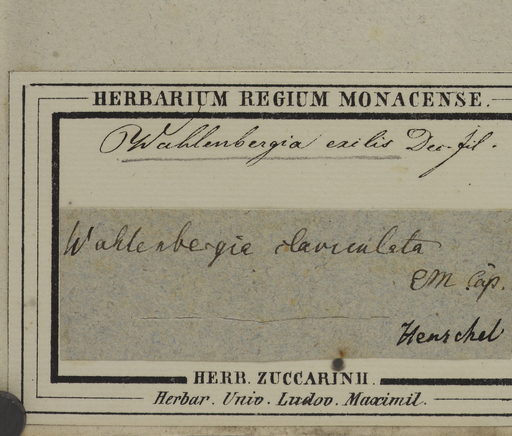 HERBARIUM REGIUM MONACENSE.
Wahlenbergia exilis Dec. fil.
Wahlenbergia
Cap.
Henschel
HERB. ZUCCARINII.
Herbar. Univ. Ludov. Maximil.